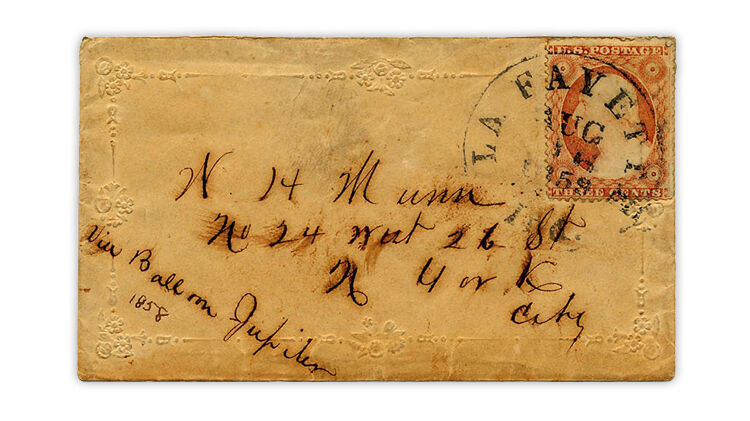 U.S. POSTAGE
THREE CENTS
LA FAYETT
UG
N. H Munn
No 24 West 26 St
N York
City
Via Balloon Jupiter
1858